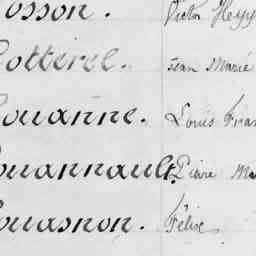 osson. Victor Hey
otterel. Jean Marie
ouanne. Louis Fran
ouannault. Pierre Ma
ouasnon. Félix